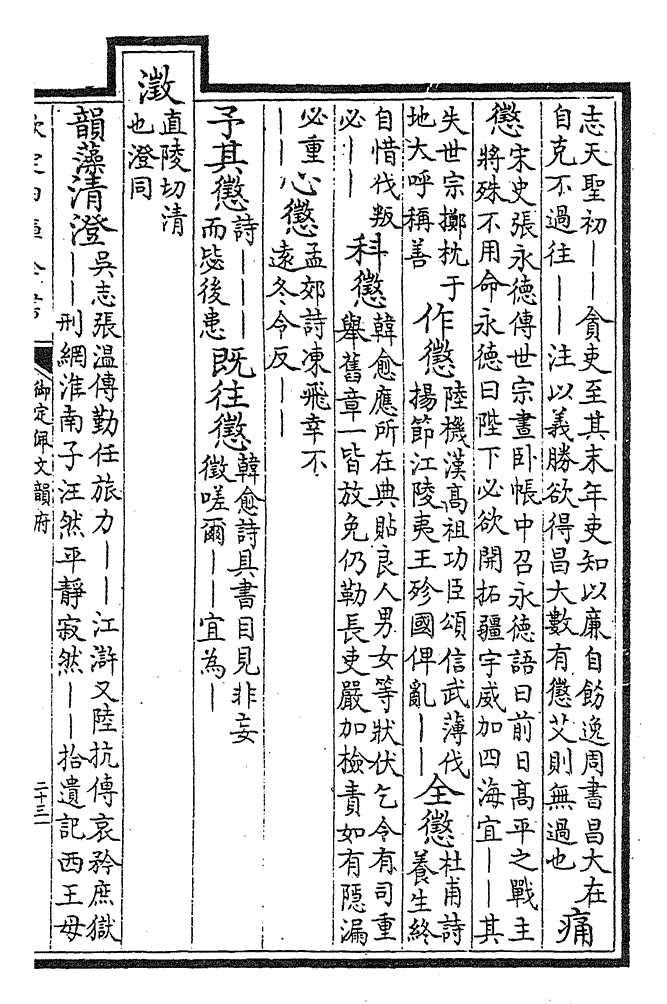 志天聖初——貪吏至其末年吏知以廉自飭逸周書昌大在
自克不過往——注以義勝欲得昌大數有懲艾則無過也
痛
懲
宋史張永德傳世宗晝卧帳中召永德語曰前日髙平之戰主
將殊不用命永德曰陛下必欲開拓疆宇威加四海宜——其
失世宗擲枕于
地大呼稱善
作懲
陸機漢髙祖功臣頌信武薄伐
揚節江陵夷王殄國俾亂——
全懲
杜甫詩
養生終
自惜伐叛
必——
科懲
韓愈應所在典貼良人男女等狀伏乞令有司重
舉舊章一皆放免仍勒長吏嚴加檢責如有隱漏
必重
——
心懲
孟郊詩凍飛幸不
遠冬令反——
予其懲
詩———
而毖後患
既往懲
韓愈詩具書目見非妄
徵嗟爾——宜為—
澂
直陵切清
也澄同
韻藻
清澄
吳志張温傳勤任旅力——江滸又陸抗傳哀矜庶獄
——刑網淮南子汪然平靜寂然——拾遺記西王母
欽定四庫全書
御定佩文韻府
二十三